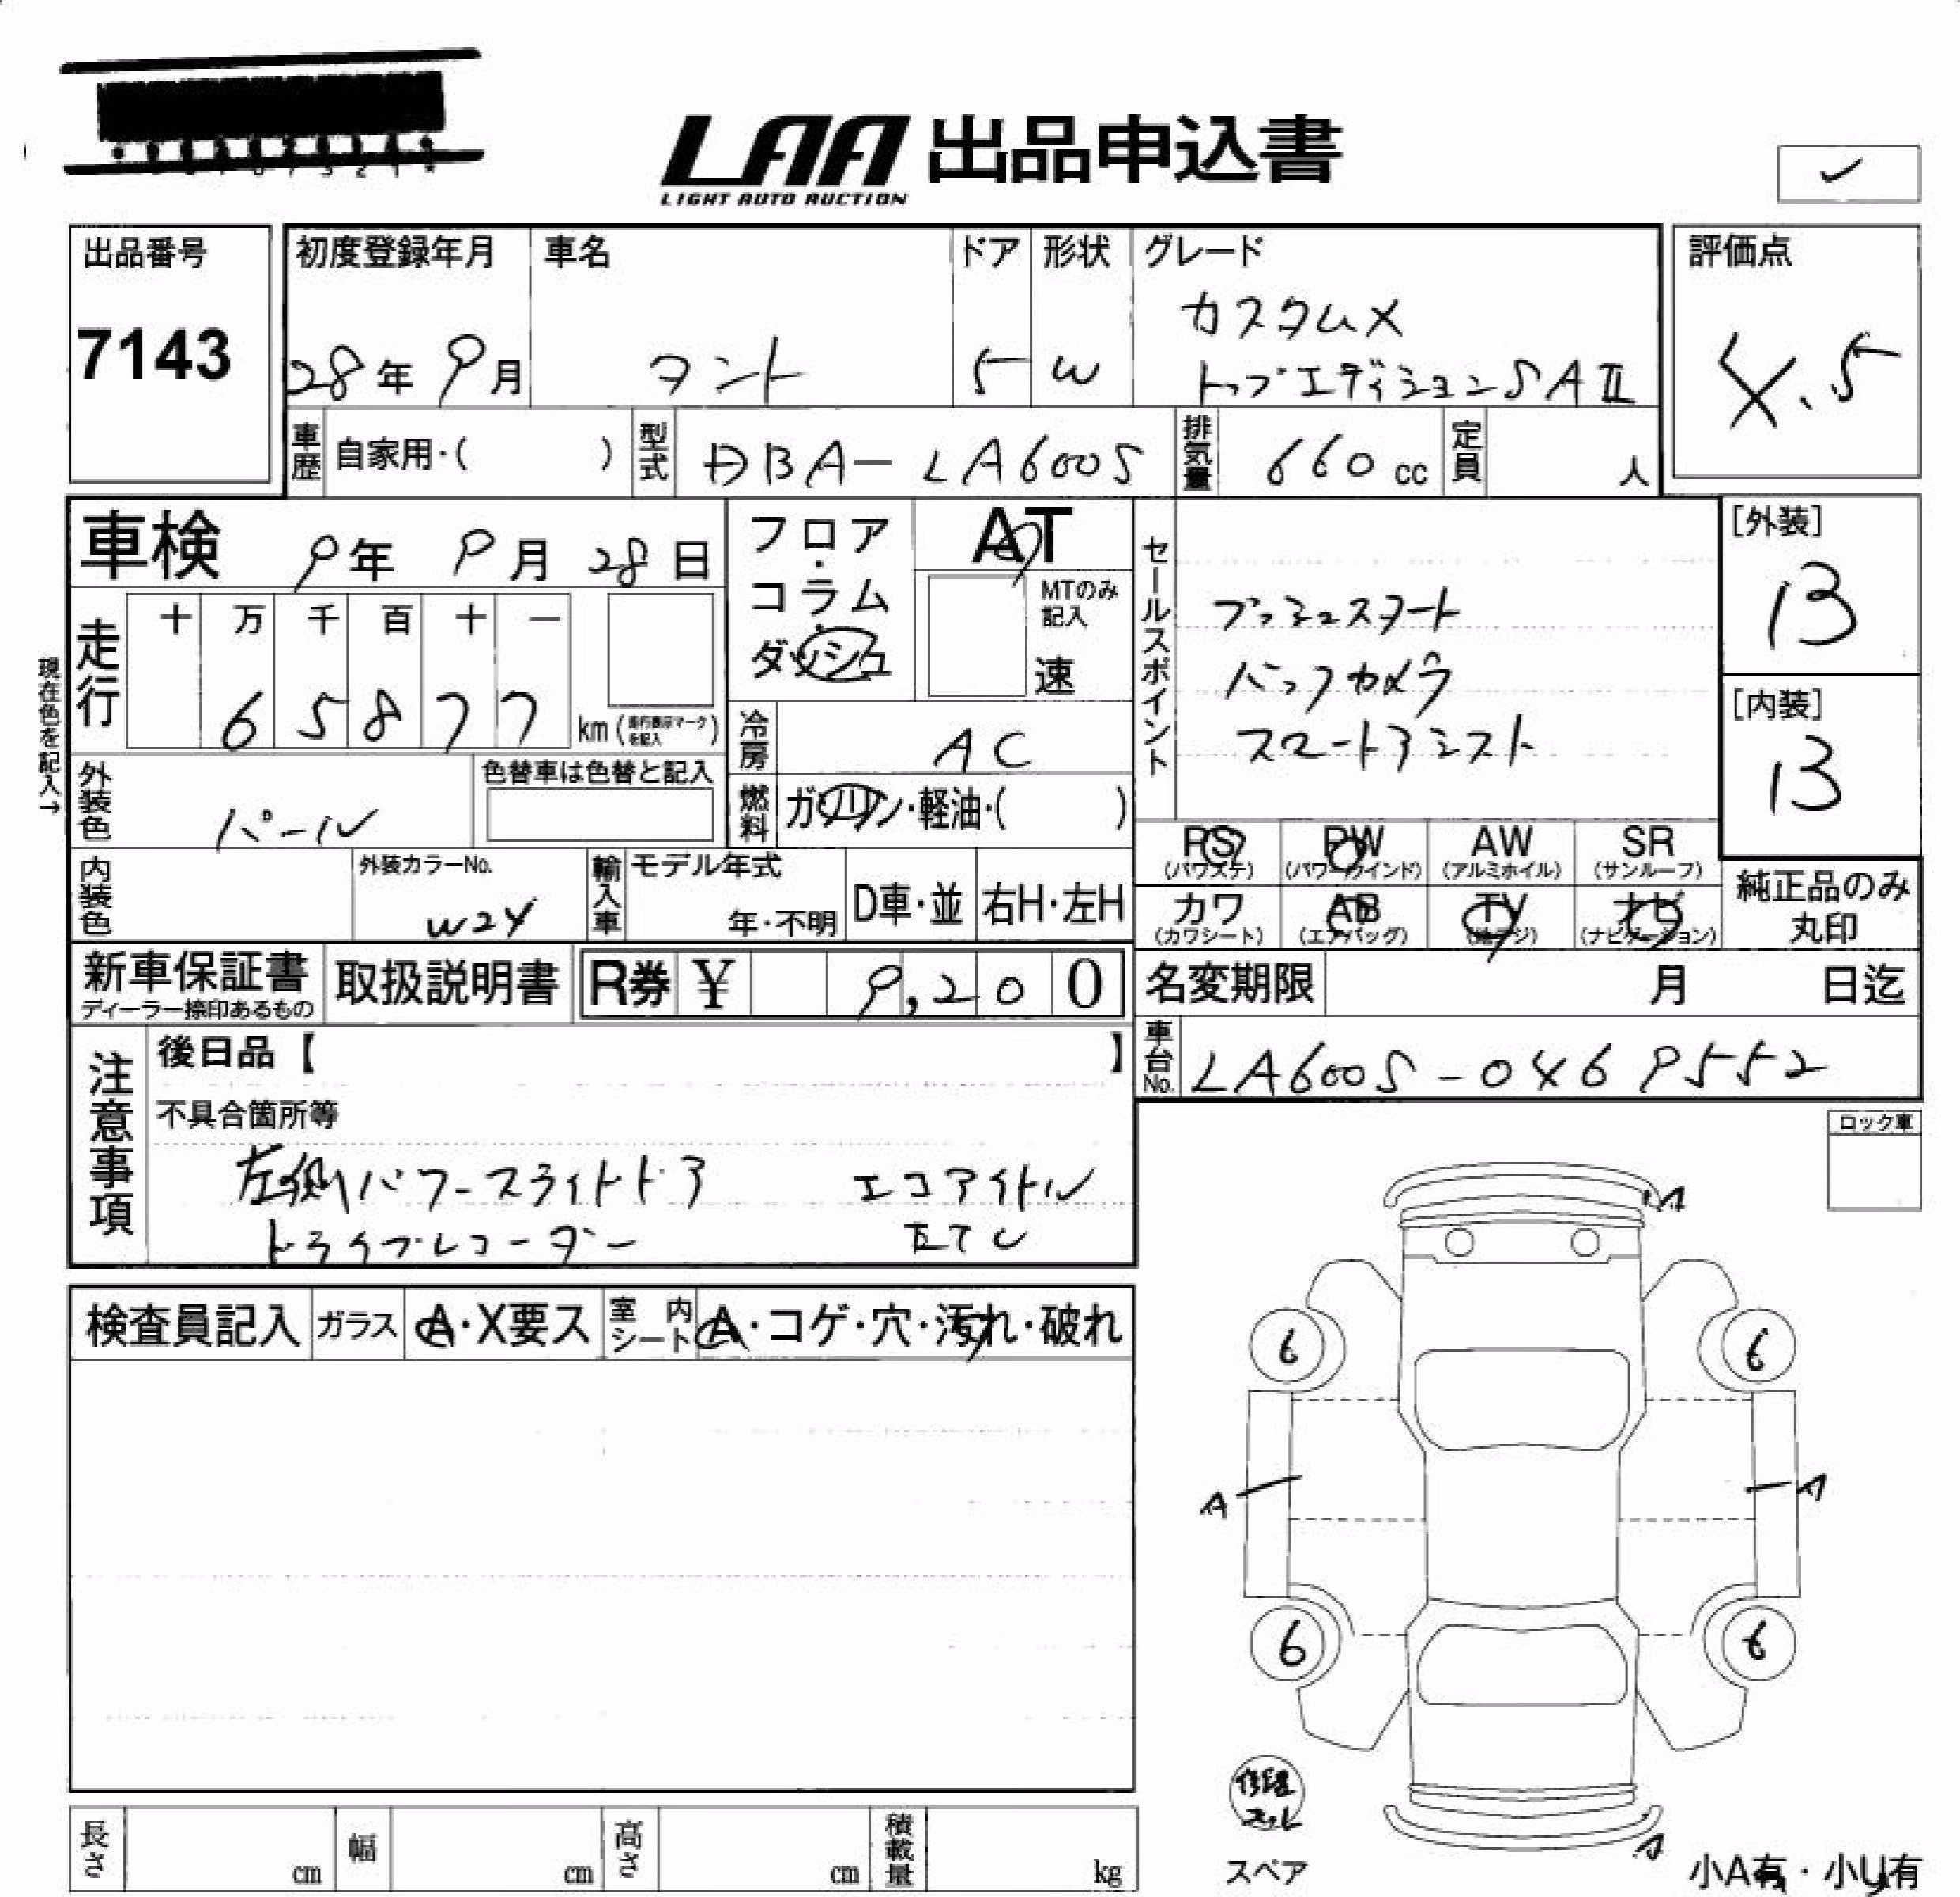 LAA 出品申込書
LIGHT AUTO AUCTION
出品番号
7143
初度登録年月
28年 9月
車名
タント
ドア
5
形状
W
グレード
カスタムX
トップエディションSAⅡ
評価点
4.5
車歴 自家用・( )
型式 DBA-LA600S
排気量 660 cc
定員 人
車検 9年 9月 28日
フロア・コラム・ダッシュ
AT
MTのみ記入
速
セールスポイント
プッシュスタート
バックカメラ
スマートアシスト
[外装]
13
[内装]
13
現在色を記入→
走行
十 万 千 百 十 一
6 5 8 7 7 km (走行表示マークを記入)
冷房 AC
燃料 ガソリン・軽油・( )
外装色 パール
色替車は色替と記入
内装色
外装カラーNo.
W24
輸入車 モデル年式
年・不明
D車・並
右H・左H
PS (パワステ)
PW (パワーウインド)
AW (アルミホイル)
SR (サンルーフ)
カワ (カワシート)
AB (エアバッグ)
TV (地デジ)
ナビ (ナビゲーション)
純正品のみ
丸印
新車保証書
ディーラー捺印あるもの
取扱説明書
R券 ¥ 9,200
名変期限 月 日迄
車台No. LA600S-0469552
注意事項
後日品【 】
不具合箇所等
左側パワースライドドア エコアイドル
ドライブレコーダー ETC
ロック車
検査員記入
ガラス A・X要ス
室内シート A・コゲ・穴・汚れ・破れ
A
6 6
A A
6 6
A
修理キット
スペア
小A有・小U有
長さ cm
幅 cm
高さ cm
積載量 kg